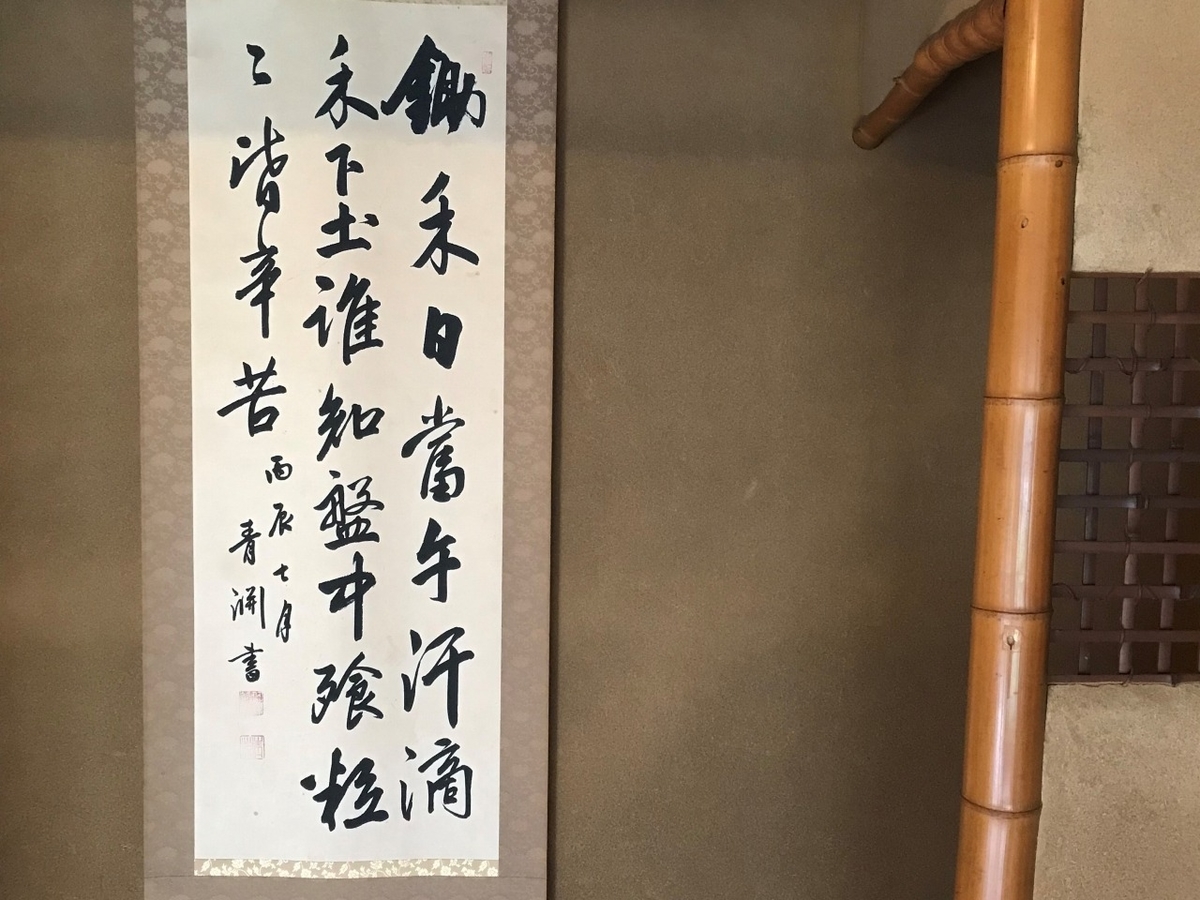 鋤禾日當午汗滴
禾下土誰知盤中飱粒
〻皆辛苦
丙辰七月
青淵書